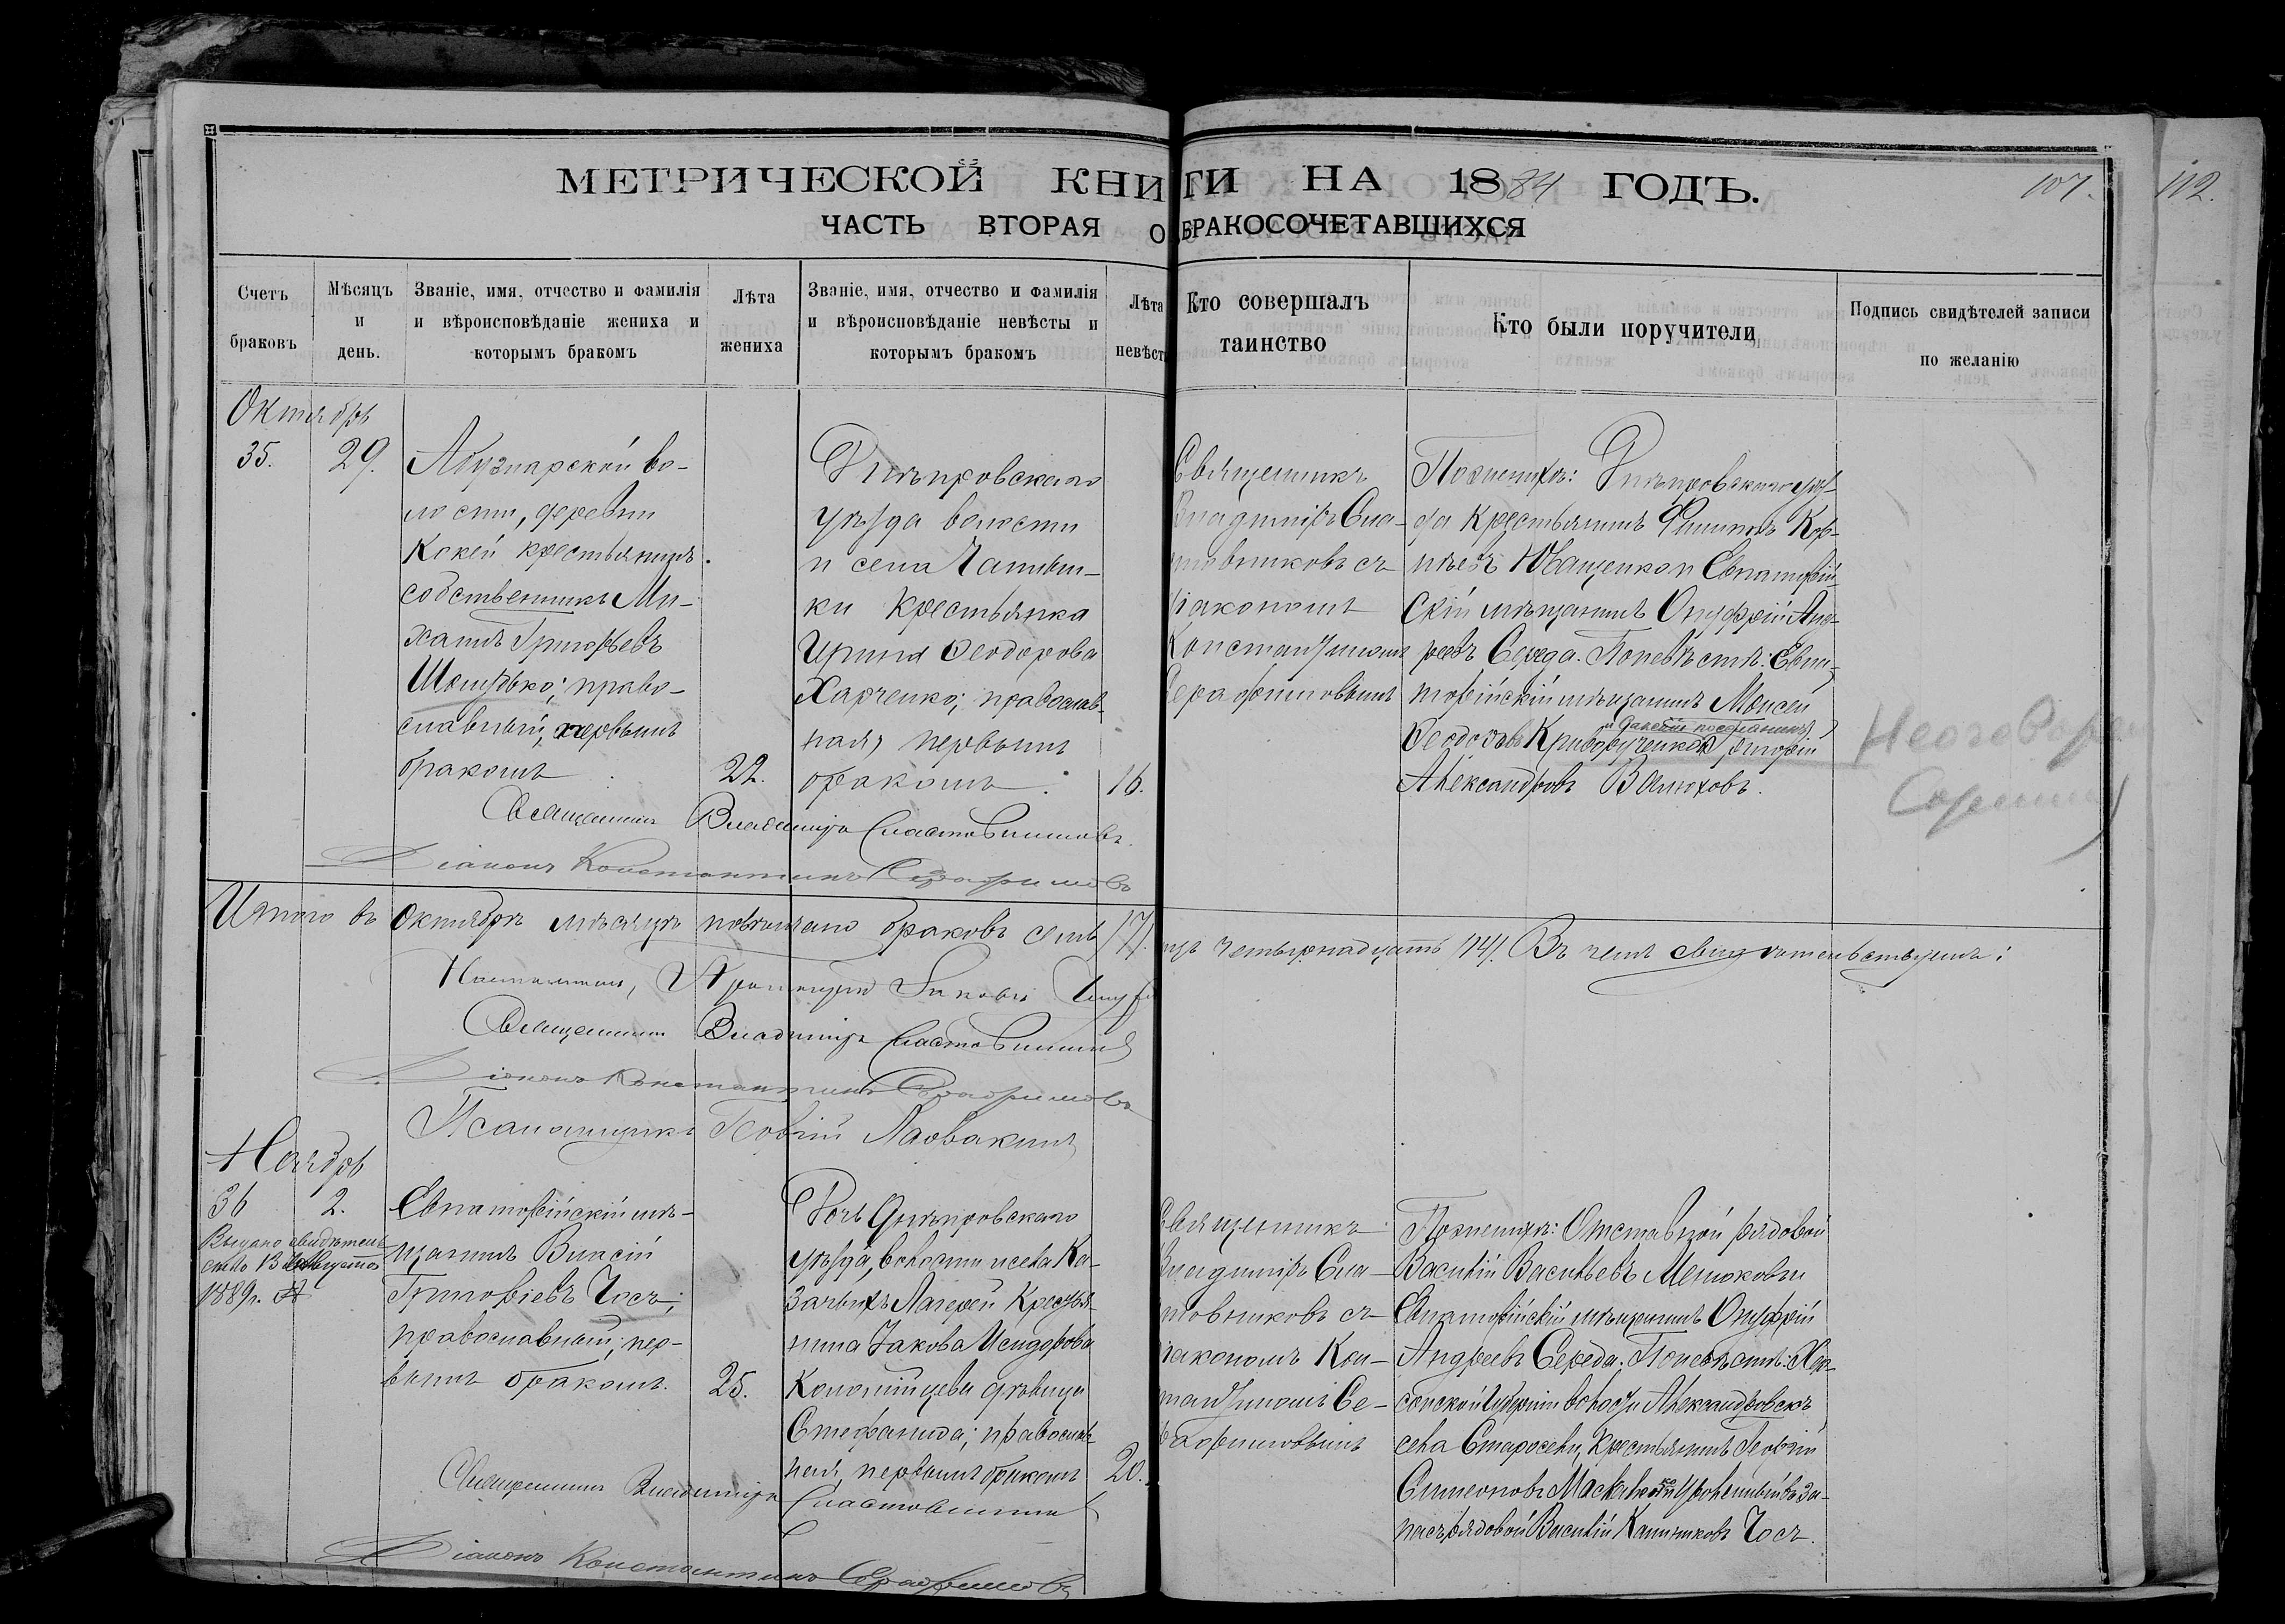 МЕТРИЧЕСКОЙ КНИГИ НА 1884 ГОДЪ.
107.
112.
ЧАСТЬ ВТОРАЯ О БРАКОСОЧЕТАВШИХСЯ
Счетъ браковъ
Мѣсяцъ и день.
Званіе, имя, отчество и фамилія и вѣроисповѣданіе жениха и которымъ бракомъ
Лѣта жениха
Званіе, имя, отчество и фамилія и вѣроисповѣданіе невѣсты и которымъ бракомъ
Лѣта невѣст
Кто совершалъ таинство
Кто были поручители
Подпись свидѣтелей записи по желанію
Октябрь
35.
29.
Абузларской во-
лости, деревни
Кокей крестьянинъ
собственникъ Ми-
хаилъ Григорьевъ
право-
славный, первымъ
бракомъ
22.
Днѣпровскаго
уѣзда волости
и села Чаплин-
ки крестьянка
Ирина Феодорова
Харченко; православ-
ная, первымъ
бракомъ.
16.
Священникъ
Владиміръ Сла-
товниковъ съ
діакономъ
Константиномъ
Серафимовымъ
По женихѣ: Днѣпровскаго уѣз-
да крестьянинъ Филиппъ Кор-
нѣевъ Иващенко и Евпаторій-
скій мѣщанинъ Онуфрій Анд-
реевъ Середа. По невѣстѣ: Евпа-
торійскій мѣщанинъ Моисей
Феодотовъ
Александровъ
Священникъ Владиміръ Сластовниковъ
Діаконъ Константинъ Серафимовъ
Итого въ Октябрѣ мѣсяцѣ повѣнчано браковъ семь /7/.
четырнадцать /14/. Въ чемъ свидѣтельствуемъ:
Протоіерей Іаковъ
Священникъ Владиміръ Сластовниковъ
Діаконъ Константинъ Серафимовъ
Псаломщикъ Георгій
Ноябрь
36
2.
Выдано свидѣтель-
ство 13 Августа
1889 г.
Евпаторійскій мѣ-
щанинъ
Григоріевъ Часъ;
православный; пер-
вымъ бракомъ.
25.
Дочь Днѣпровскаго
уѣзда, волости и села Ка-
зачьихъ Лагерей крестья-
нина Іакова Исидорова
Коломійцева дѣвица
Стефанида; православ-
ная, первымъ бракомъ
20.
Священникъ
Владиміръ Сла-
стовниковъ съ
діакономъ Кон-
стантиномъ Се-
рафимовымъ
По женихѣ: Отставной рядовой
Василій Васильевъ Мешковъ и
Евпаторійскій мѣщанинъ Онуфрій
Андреевъ Середа. По невѣстѣ: Хер-
сонской губерніи волости Александровскъ
села Староселья, крестьянинъ Георгій
Симеоновъ
пасъ рядовой Василій Часъ.
Священникъ Владиміръ Сластовниковъ
Діаконъ Константинъ Серафимовъ